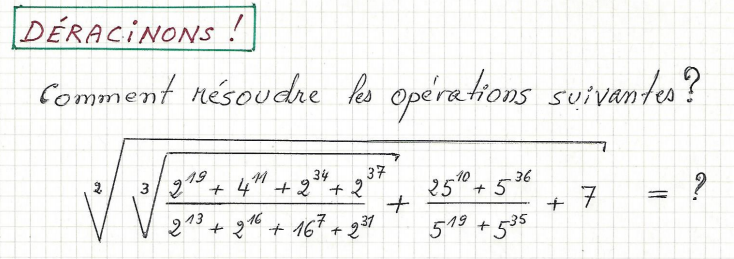 DÉRACINONS !
Comment résoudre les opérations suivantes ?
²√(³√((2¹⁹ + 4¹¹ + 2³⁴ + 2³⁷)/(2¹³ + 2¹⁶ + 16⁷ + 2³¹)) + (25¹⁰ + 5³⁶)/(5¹⁹ + 5³⁵) + 7) = ?